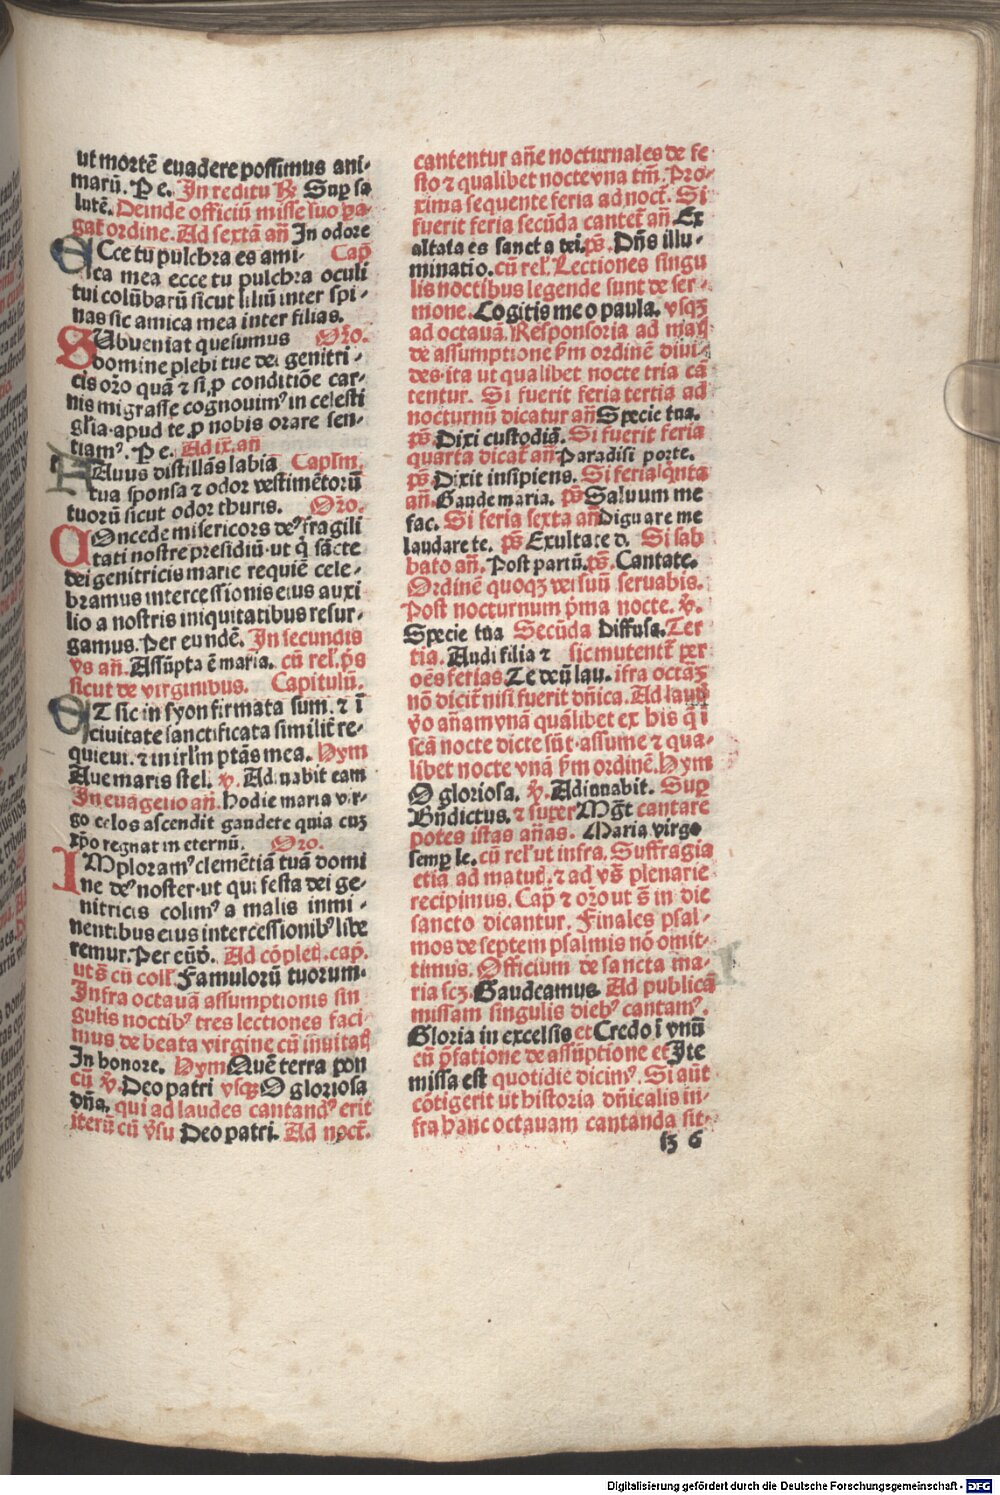 ut mortē euadere possimus ani⸗
marū. P e. In reditu ℟ Sup sa
lutē. Deinde officiū misse suo pa⸗
gat ordine. Ad sextā añ In odore
ECce tu pulchra es ami⸗ Cap
ca mea ecce tu pulchra oculi
tui colūbarū sicut liliū inter spi⸗
nas sic amica mea inter filias.
SUbueniat quesumus Oro.
domine plebi tue dei genitri⸗
cis oro quā ⁊ si p conditiōe car⸗
nis migrasse cognouimꝰ in celesti
glia apud te p nobis orare sen⸗
tiamꝰ. P e. Ad ix. añ
FAuus distillās labia Caplm.
tua sponsa ⁊ odor vestimētorū
tuorū sicut odor thuris. Oro.
COncede misericors deꝰ fragili
tati nostre presidiū ut q sācte
dei genitricis marie requiē cele⸗
bramus intercessionis eius auxi
lio a nostris iniquitatibus resur⸗
gamus. Per eundē. In secundis
vs añ. Assūpta ē maria. cū rel. ps
sicut de virginibus. Capitulū.
ET sic in syon firmata sum. ⁊ ī
ciuitate sanctificata similit̄ re⸗
quieui. ⁊ in irlm ptās mea. Hym
Aue maris stel. ꝟ. Adiuuabit eam
In euāgelio añ. Hodie maria vir⸗
go celos ascendit gaudete quia cuꝫ
xp̄o regnat in eternū. Oro.
IMploramꝰ clemētiā tuā domi
ne deꝰ noster ut qui festa dei ge⸗
nitricis colimꝰ a malis inmi⸗
nentibus eius intercessionibꝰ libe
remur. Per eūd. Ad cōplet. cap.
ut s̄ cū coll. Famulorū tuorum.
Infra octauā assumptionis sin
gulis noctibꝰ tres lectiones faci⸗
mus de beata virgine cū inuitat̄
In honore. Hym Quē terra pon
cū ꝟ. Deo patri vsqꝫ O gloriosa
dn̄a. qui ad laudes cantandꝰ erit
iterū cū v̄su Deo patri. Ad noct.
cantentur añe nocturnales de fe
sto ⁊ qualibet nocte vna tm̄. Pro⸗
xima sequente feria ad noct. Si
fuerit feria secūda cantet añ Ex
altata es sancta dei. ps. Dn̄s illu⸗
minatio. cū rel. Lectiones singu
lis noctibus legende sunt de ser⸗
mone. Cogitis me o paula. vsqꝫ
ad octauā. Responsoria ad maq̄
de assumptione p̄m ordinē diui⸗
des. ita ut qualibet nocte tria cā
tentur. Si fuerit feria tertia ad
nocturnū dicatur añ Specie tua.
ps. Dixi custodiā. Si fuerit feria
quarta dicat añ Paradisi porte.
ps. Dixit insipiens. Si feria qnta
añ. Gaude maria. ps Saluum me
fac. Si feria sexta añ Dignare me
laudare te. ps Exultate d. Si sab
bato añ. Post partū. ps. Cantate.
Ordinē quoqꝫ versuū seruabis.
Post nocturnum p̄ma nocte. ꝟ.
Specie tua Secūda Diffusa. Ter
tia. Audi filia ⁊ sic mutent̄ per
oēs ferias. Te deū lau. ifra octaꝫ
nō dicit̄ nisi fuerit dn̄ica. Ad laud
vo añam vnā quālibet ex his q ī
scā nocte dicte sūt assume ⁊ qua⸗
libet nocte vnā p̄m ordinē. Hym
O gloriosa. ꝟ. Adiuuabit. Sup
Bn̄dictus. ⁊ super Mgt cantare
potes istas añas. Maria virgo
semp le. cū rel. ut infra. Suffragia
etia ad matud. ⁊ ad vs̄ plenarie
recipimus. Cap ⁊ oro ut s̄ in die
sancto dicantur. Finales psal⸗
mos de septem psalmis nō omit⸗
timus. Officium de sancta ma⸗
ria scꝫ. Gaudeamus. Ad publicā
missam singulis diebꝰ cantamꝰ.
Gloria in excelsis et Credo ī vnū
cū p̄fatione de assūptione et Ite
missa est quotidie dicimꝰ. Si aūt
cōtigerit ut historia dn̄icalis in⸗
fra hanc octauam cantanda sit⸗
h 6
Digitalisierung gefördert durch die Deutsche Forschungsgemeinschaft - DFG